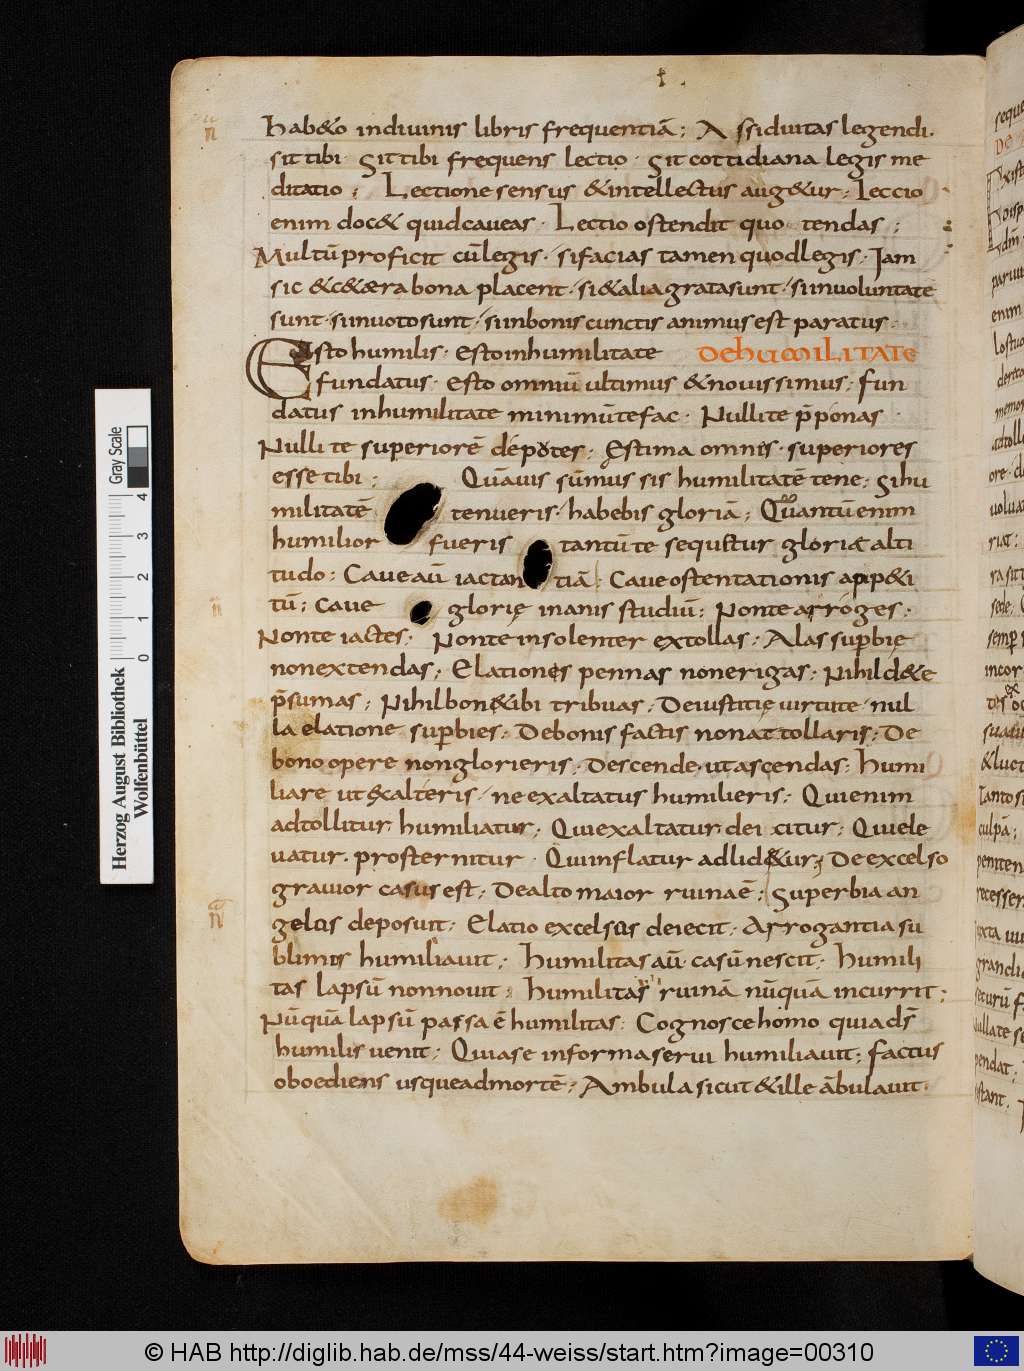 hab&o indiuinis libris frequentiā; Assiduitas legendi.
sit tibi. Sit tibi frequens lectio. Sit cottidiana legis me
ditatio; Lectione sensus &intellectus aug&ur; Leccio
enim doc& quid caueas. Lectio ostendit quo tendas;
Multū proficit cū legis. si facias tamen quod legis; Iam
sic &c&æra bona placent. si&alia grata sunt. si inuoluntate
sunt. si inuoto sunt. si inbonis cunctis animus est paratus.
Esto humilis. esto inhumilitate DE HUMILITATE
fundatus. esto omniū ultimus &nouissimus; fun
datus inhumilitate minimū te fac. Nulli te p̄ponas.
Nulli te superiorē depotes; Ęstima omnis. superiores
esse tibi; Quāuis sūmus sis humilitatē tene; Si hu
militatē tenueris. habebis gloriā; Quantū enim
humilior fueris tantū te sequ&ur gloriæ alti
tudo; Caue aū iactantiā; Caue ostentationis app&i
tū; Caue glorię inanis studiū; Non te arroges;
Non te iactes; Non te insolenter extollas; Alas supbię
non extendas; Elationes pennas non erigas; Nihil de te
p̄sumas; Nihil boni &ibi tribuas; De iustitię uirtute. nul
la elatione supbies; De bonis factis non attollaris; De
bono opere non glorieris; Descende. ut ascendas; humi
liare ut exalteris. ne exaltatus humilieris; Qui enim
adtollitur humiliatur; Qui exaltatur deicitur; Qui ele
uatur. prosternitur. Qui inflatur adlid&ur; De excelso
grauior casus est; De alto maior ruina ē; Superbia an
gelos deposuit; Elatio excelsos deiecit. Arrogantia su
blimis humiliauit; humilitas aū casū nescit; humili
tas lapsū non nouit; humilitas ruinā nūquā incurrit;
Nūquā lapsū passa ē humilitas; Cognosce homo quia ds̄
humilis uenit; Quia se informa serui humiliauit; factus
oboediens usque ad mortē; Ambula sicut &ille ābulauit.
Gray Scale
Herzog August Bibliothek
Wolfenbüttel
0 1 2 3 4
© HAB http://diglib.hab.de/mss/44-weiss/start.htm?image=00310